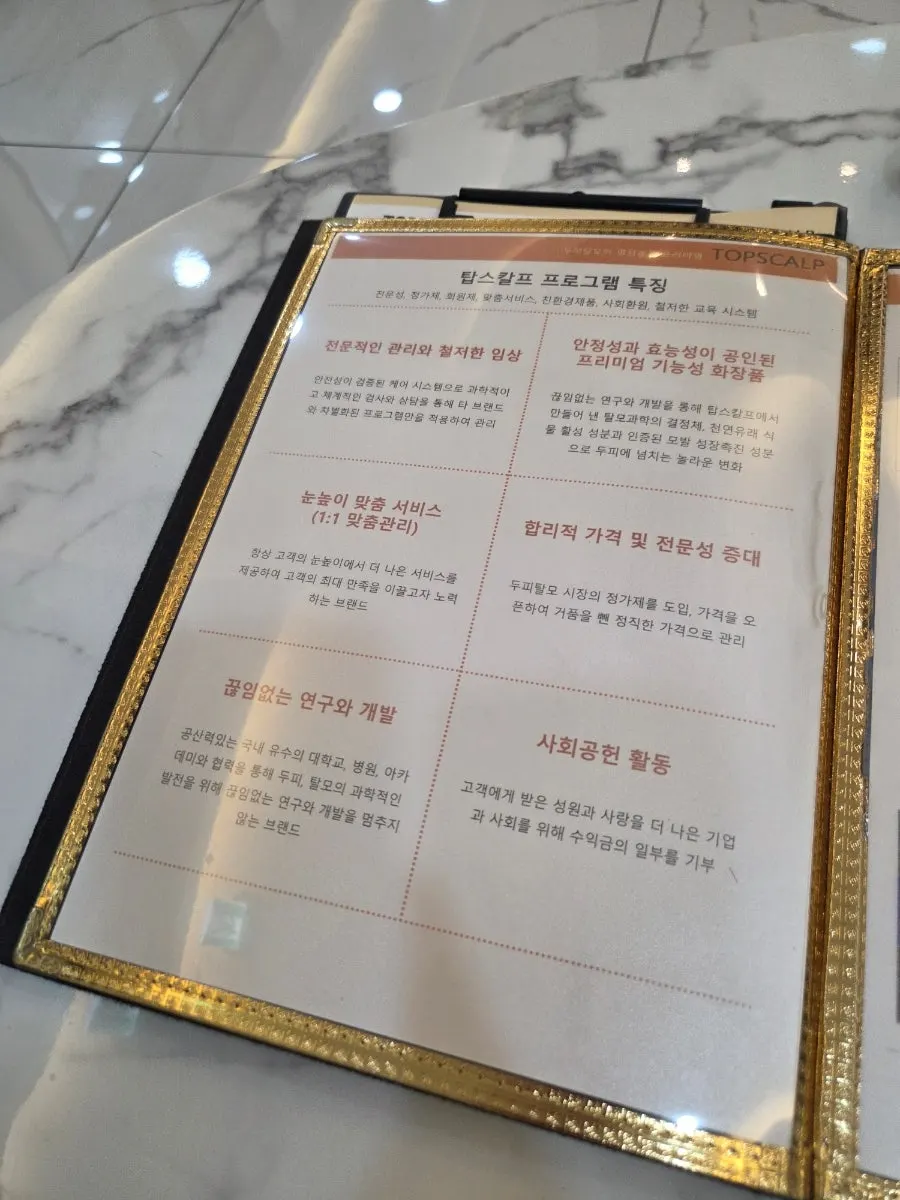 TOPSCALP
탑스칼프 프로그램 특징
전문성, 정가제, 회원제, 맞춤서비스, 친환경제품, 사회환원, 철저한 교육 시스템
전문적인 관리와 철저한 임상
안전성이 검증된 케어 시스템으로 과학적이
고 체계적인 검사와 상담을 통해 타 브랜드
와 차별화된 프로그램만을 적용하여 관리
안정성과 효능성이 공인된
프리미엄 기능성 화장품
끊임없는 연구와 개발을 통해 탑스칼프에서
만들어 낸 탈모과학의 결정체, 천연유래 식
물 활성 성분과 인증된 모발 성장촉진 성분
으로 두피에 넘치는 놀라운 변화
눈높이 맞춤 서비스
(1:1 맞춤관리)
항상 고객의 눈높이에서 더 나은 서비스를
제공하여 고객의 최대 만족을 이끌고자 노력
하는 브랜드
합리적 가격 및 전문성 증대
두피탈모 시장의 정가제를 도입, 가격을 오
픈하여 거품을 뺀 정직한 가격으로 관리
끊임없는 연구와 개발
공산력있는 국내 유수의 대학교, 병원, 아카
데미와 협력을 통해 두피, 탈모의 과학적인
발전을 위해 끊임없는 연구와 개발을 멈추지
않는 브랜드
사회공헌 활동
고객에게 받은 성원과 사랑을 더 나은 기업
과 사회를 위해 수익금의 일부를 기부